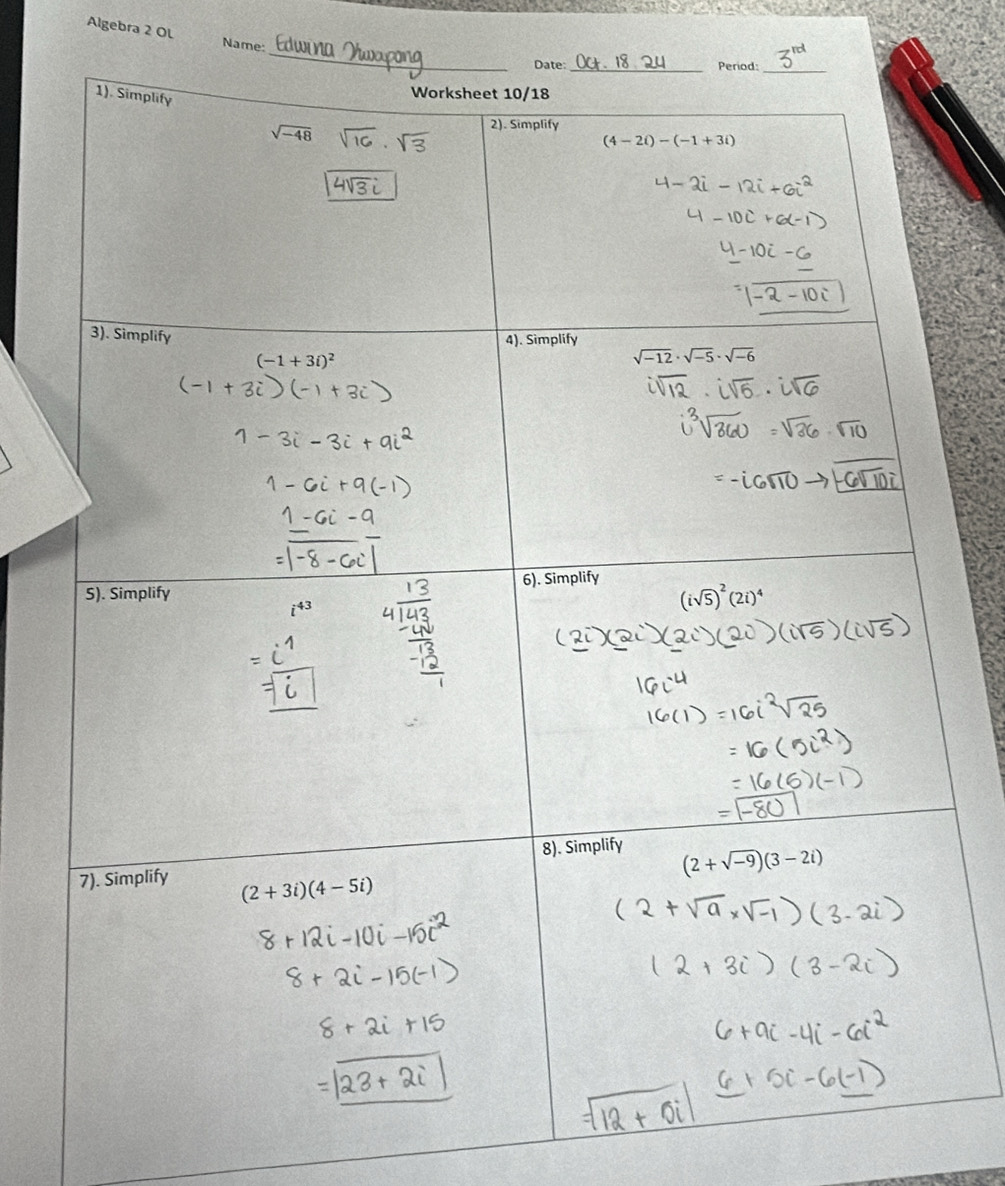 Algebra 2 OL
Name: Edwina
Date: Oct. 18. 24 Period: 3rd
Worksheet 10/18
1). Simplify
√-48 √16 · √3
4√3i
2). Simplify
(4 − 2i) − (−1 + 3i)
4 - 2i - 12i + 6i²
4 - 10i + 6(-1)
4 - 10i - 6
= -2 - 10i
3). Simplify
(−1 + 3i)²
(-1 + 3i)(-1 + 3i)
1 - 3i - 3i + 9i²
1 - 6i + 9(-1)
1 - 6i - 9
= -8 - 6i
4). Simplify
√-12 · √-5 · √-6
i√12 . i√5 . i√6
i³√360 = √36 · √10
= -i6√10 → -6√10i
5). Simplify
i⁴³
= i¹
= i
13
4|43
-4
13
-12
1
6). Simplify
(i√5)²(2i)⁴
(2i)(2i)(2i)(2i)(i√5)(i√5)
16i⁴
16(1) = 16i²√25
= 16(5i²)
= 16(5)(-1)
= -80
7). Simplify
(2 + 3i)(4 − 5i)
8 + 12i - 10i - 15i²
8 + 2i - 15(-1)
8 + 2i + 15
= 23 + 2i
8). Simplify
(2 + √-9)(3 − 2i)
(2 + √9 × √-1)(3 - 2i)
(2 + 3i)(3 - 2i)
6 + 9i - 4i - 6i²
6 + 5i - 6(-1)
= 12 + 5i